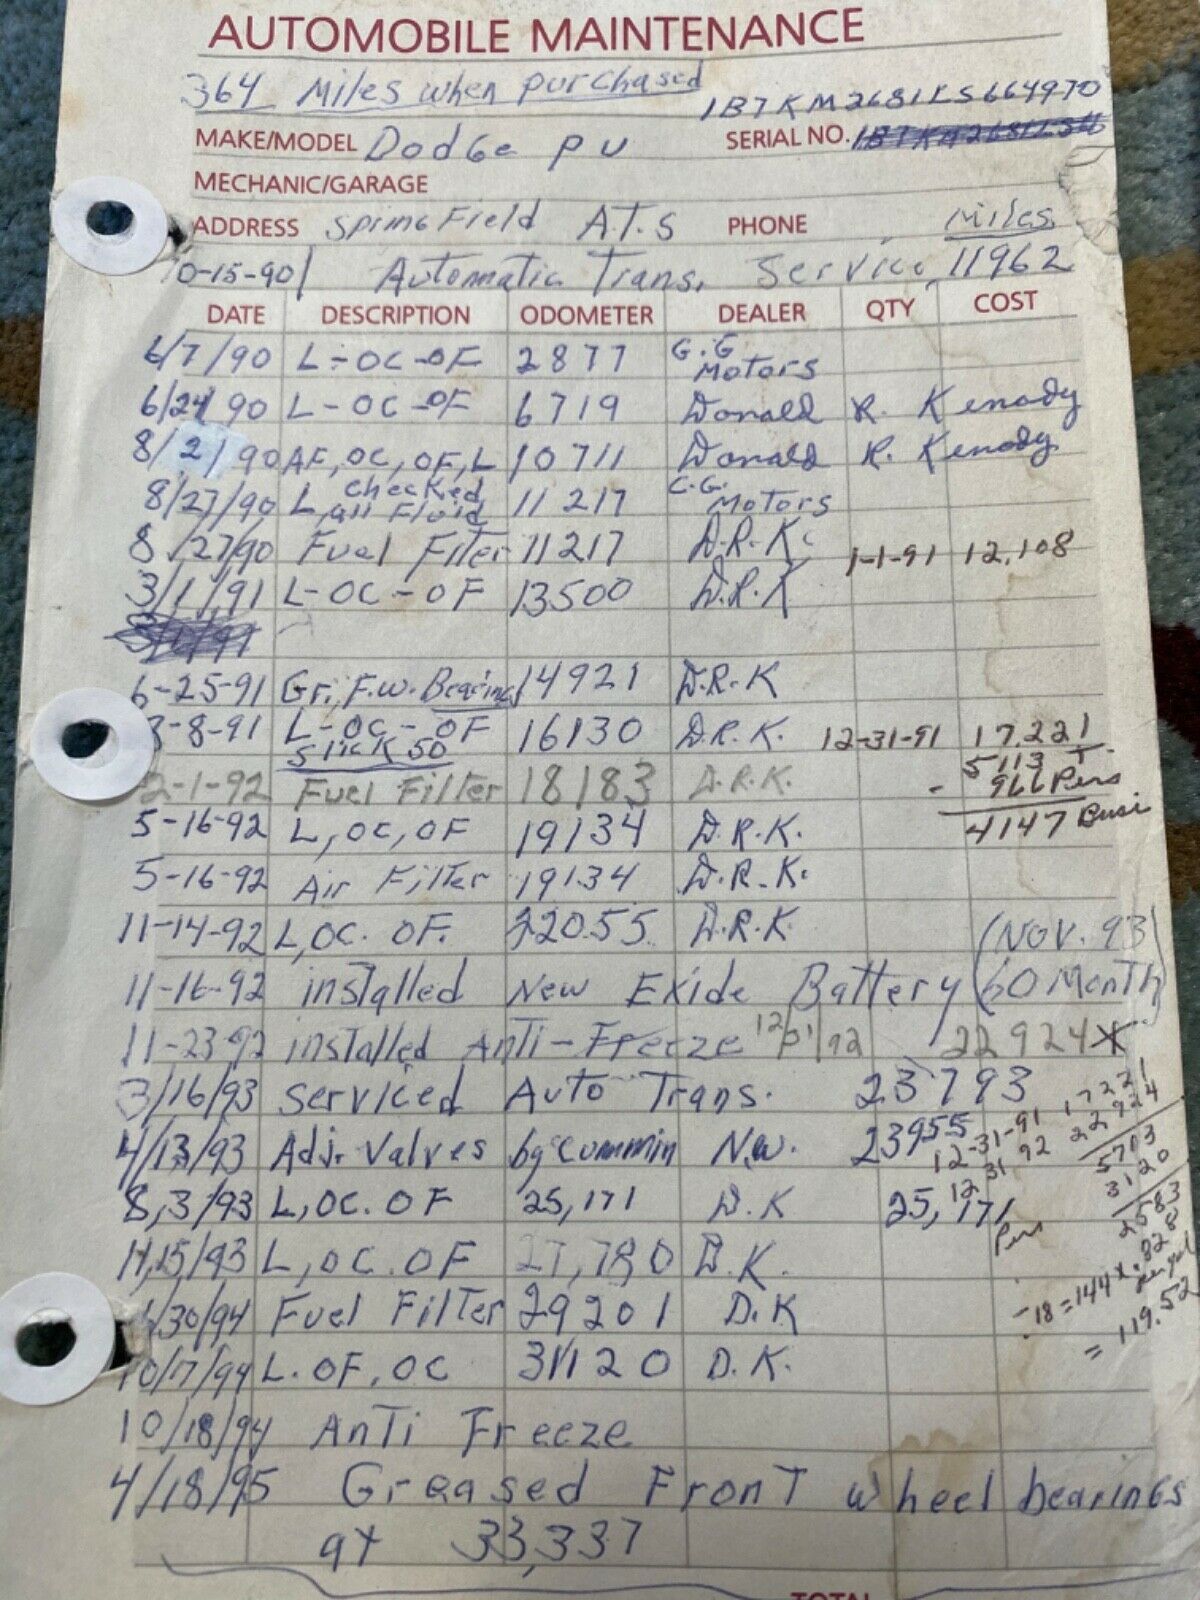 AUTOMOBILE MAINTENANCE
364 Miles when purchased
1B7KM2681LS664970
MAKE/MODEL Dodge PU SERIAL NO.
MECHANIC/GARAGE
ADDRESS SpringField A.T.S PHONE Miles
10-15-90 Automatic Trans. Service, 11962
DATE DESCRIPTION ODOMETER DEALER QTY COST
6/7/90 L-OC-OF 2877 G.G Motors
6/24/90 L-OC-OF 6719 Donald R. Kenady
8/2/90 AF,OC,OF,L 10711 Donald R. Kenady
8/27/90 L, checked all Fluid 11217 C.G. Motors
8/27/90 Fuel Filter 11217 D.R.K. 1-1-91 12,108
3/1/91 L-OC-OF 13500 D.R.K
6-25-91 Gr. F.W. Bearings 14921 D.R.K
8-91 L-OC-OF 16130 D.R.K. 12-31-91 17,221
Slick 50 5113 T.
2-1-92 Fuel Filter 18183 D.R.K. - 966 Pers
5-16-92 L, OC, OF 19134 D.R.K. 4147 Busi
5-16-92 Air Filter 19134 D.R.K.
11-14-92 L, OC. OF. 22055 D.R.K. (NOV. 93)
11-16-92 installed New Exide Battery (60 Month)
11-23-92 installed Anti-Freeze 12/31/92 22924 X
3/16/93 Serviced Auto Trans. 23793
4/13/93 Adj. Valves by Cummin N.W. 23955
12-31-91 17221
12 31 92 22924
5703
3120
8,3/93 L, OC. OF 25,171 D.K 25,171
Pers 2583
11,15/93 L, OC. OF 27,780 D.K.
-18=144 x .828 per gal
= 119.52
/30/94 Fuel Filter 29201 D.K
10/17/94 L. OF, OC 31120 D.K.
10/18/94 Anti Freeze
4/18/95 Greased Front wheel bearings
at 33,337
TOTAL